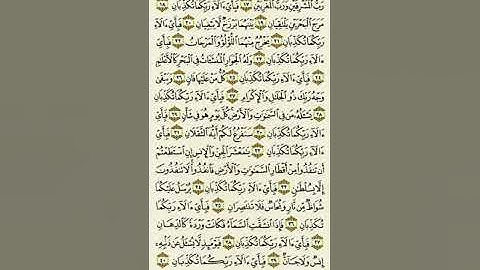 رَبُّ ٱلْمَشْرِقَيْنِ وَرَبُّ ٱلْمَغْرِبَيْنِ ١٧ فَبِأَيِّ ءَالَآءِ رَبِّكُمَا تُكَذِّبَانِ ١٨
مَرَجَ ٱلْبَحْرَيْنِ يَلْتَقِيَانِ ١٩ بَيْنَهُمَا بَرْزَخٌ لَّا يَبْغِيَانِ ٢٠ فَبِأَيِّ ءَالَآءِ
رَبِّكُمَا تُكَذِّبَانِ ٢١ يَخْرُجُ مِنْهُمَا ٱللُّؤْلُؤُ وَٱلْمَرْجَانُ ٢٢ فَبِأَيِّ
ءَالَآءِ رَبِّكُمَا تُكَذِّبَانِ ٢٣ وَلَهُ ٱلْجَوَارِ ٱلْمُنشَـَٔاتُ فِى ٱلْبَحْرِ كَٱلْأَعْلَٰمِ
٢٤ فَبِأَيِّ ءَالَآءِ رَبِّكُمَا تُكَذِّبَانِ ٢٥ كُلُّ مَنْ عَلَيْهَا فَانٍ ٢٦ وَيَبْقَىٰ
وَجْهُ رَبِّكَ ذُو ٱلْجَلَٰلِ وَٱلْإِكْرَامِ ٢٧ فَبِأَيِّ ءَالَآءِ رَبِّكُمَا تُكَذِّبَانِ
٢٨ يَسْـَٔلُهُۥ مَن فِى ٱلسَّمَٰوَٰتِ وَٱلْأَرْضِ كُلَّ يَوْمٍ هُوَ فِى شَأْنٍ ٢٩ فَبِأَيِّ
ءَالَآءِ رَبِّكُمَا تُكَذِّبَانِ ٣٠ سَنَفْرُغُ لَكُمْ أَيُّهَ ٱلثَّقَلَانِ ٣١ فَبِأَيِّ
ءَالَآءِ رَبِّكُمَا تُكَذِّبَانِ ٣٢ يَٰمَعْشَرَ ٱلْجِنِّ وَٱلْإِنسِ إِنِ ٱسْتَطَعْتُمْ
أَن تَنفُذُوا۟ مِنْ أَقْطَارِ ٱلسَّمَٰوَٰتِ وَٱلْأَرْضِ فَٱنفُذُوا۟ لَا تَنفُذُونَ
إِلَّا بِسُلْطَٰنٍ ٣٣ فَبِأَيِّ ءَالَآءِ رَبِّكُمَا تُكَذِّبَانِ ٣٤ يُرْسَلُ عَلَيْكُمَا
شُوَاظٌ مِّن نَّارٍ وَنُحَاسٌ فَلَا تَنتَصِرَانِ ٣٥ فَبِأَيِّ ءَالَآءِ رَبِّكُمَا
تُكَذِّبَانِ ٣٦ فَإِذَا ٱنشَقَّتِ ٱلسَّمَآءُ فَكَانَتْ وَرْدَةً كَٱلدِّهَانِ
٣٧ فَبِأَيِّ ءَالَآءِ رَبِّكُمَا تُكَذِّبَانِ ٣٨ فَيَوْمَئِذٍ لَّا يُسْـَٔلُ عَن ذَنۢبِهِۦٓ
إِنسٌ وَلَا جَآنٌّ ٣٩ فَبِأَيِّ ءَالَآءِ رَبِّكُمَا تُكَذِّبَانِ ٤٠